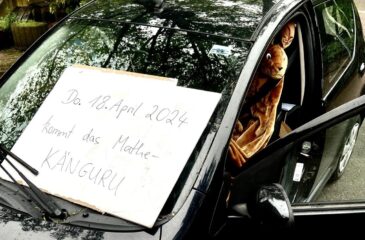 Do. 18. April 2024
kommt das Mathe-
KÄNGURU